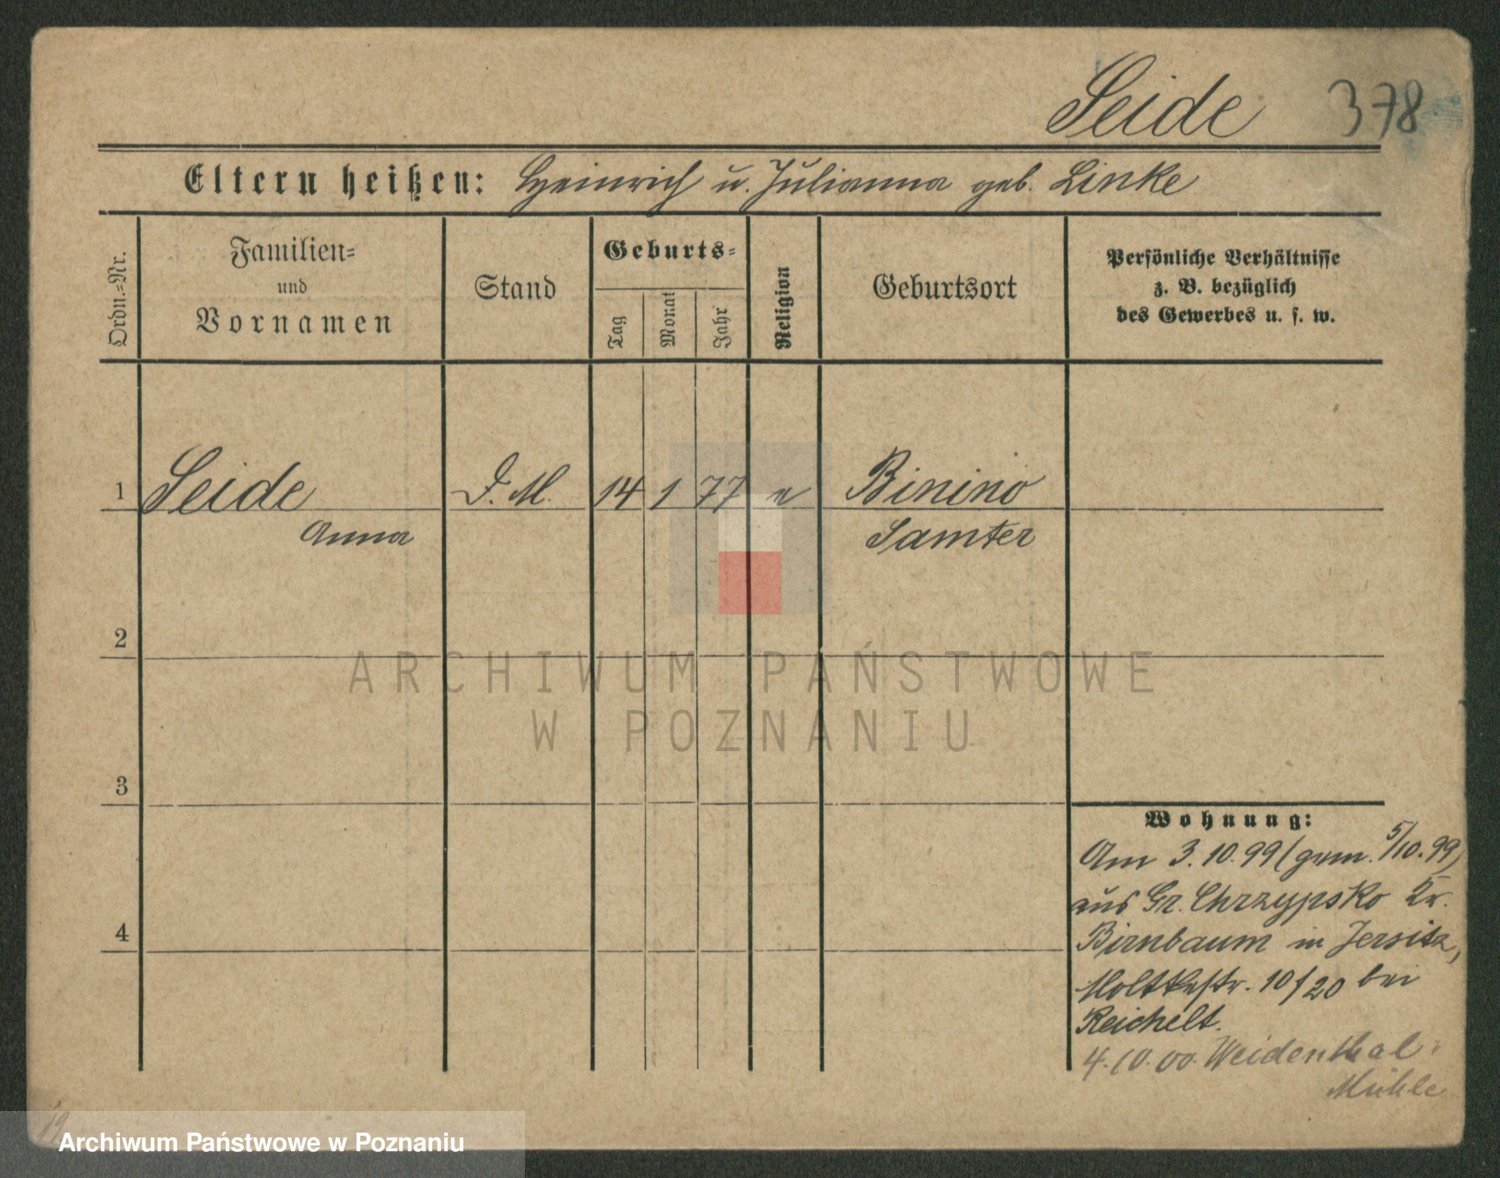 Seide 378
Eltern heißen: Heinrich u. Julianna geb. Linke
Ordn.-Nr.
Familien-
und
Vornamen
Stand
Geburts-
Tag
Monat
Jahr
Religion
Geburtsort
Persönliche Verhältnisse
z. B. bezüglich
des Gewerbes u. s. w.
1 Seide D. M. 14 1 77 e Binino
Anna Samter
2
3
4
Wohnung:
Am 3.10.99 (gem. 5/10.99)
aus Gr. Chrzypsko Kr.
Birnbaum in Jersitz,
Moltkestr. 10/20 bei
Reichelt.
4.10.00. Weidenthal-
Mühle
ARCHIWUM PAŃSTWOWE
W POZNANIU
Archiwum Państwowe w Poznaniu